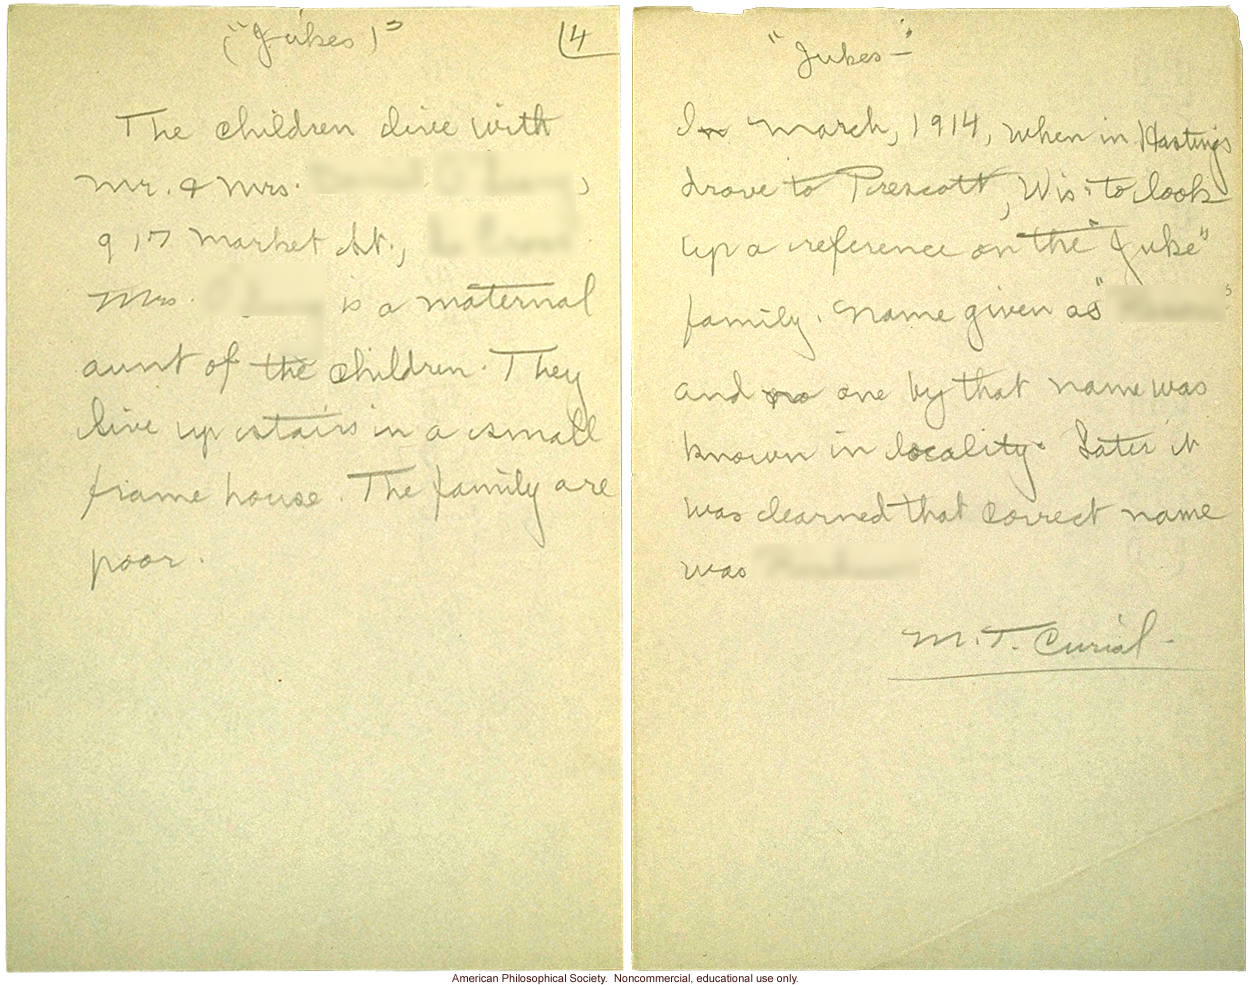 ("Jukes)"
4
The children live with
Mr. & Mrs.
917 Market St.,
Mrs. is a maternal
aunt of the children. They
live up stairs in a small
frame house. The family are
poor.
"Jukes—"
In March, 1914, when in Hastings
drove to Prescott, Wis. to look
up a reference on the "Juke"
family. Name given as " "
and no one by that name was
known in locality. Later it
was learned that correct name
was
M.T. Curial.
American Philosophical Society. Noncommercial, educational use only.